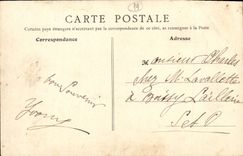 CARTE POSTALE
Certains pays étrangers n'acceptant pas la correspondance de ce côté, se renseigner à la Poste
Correspondance
Adresse
Monsieur Charles
chez M. Lavallotte
à
S et O
bon Souvenir
Yvonne